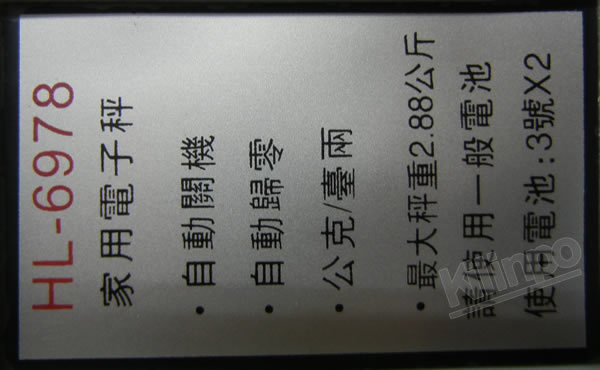 HL-6978
家用電子秤
・自動關機
・自動歸零
・公克/臺兩
・最大秤重2.88公斤
請使用一般電池
使用電池:3號X2
Kimo